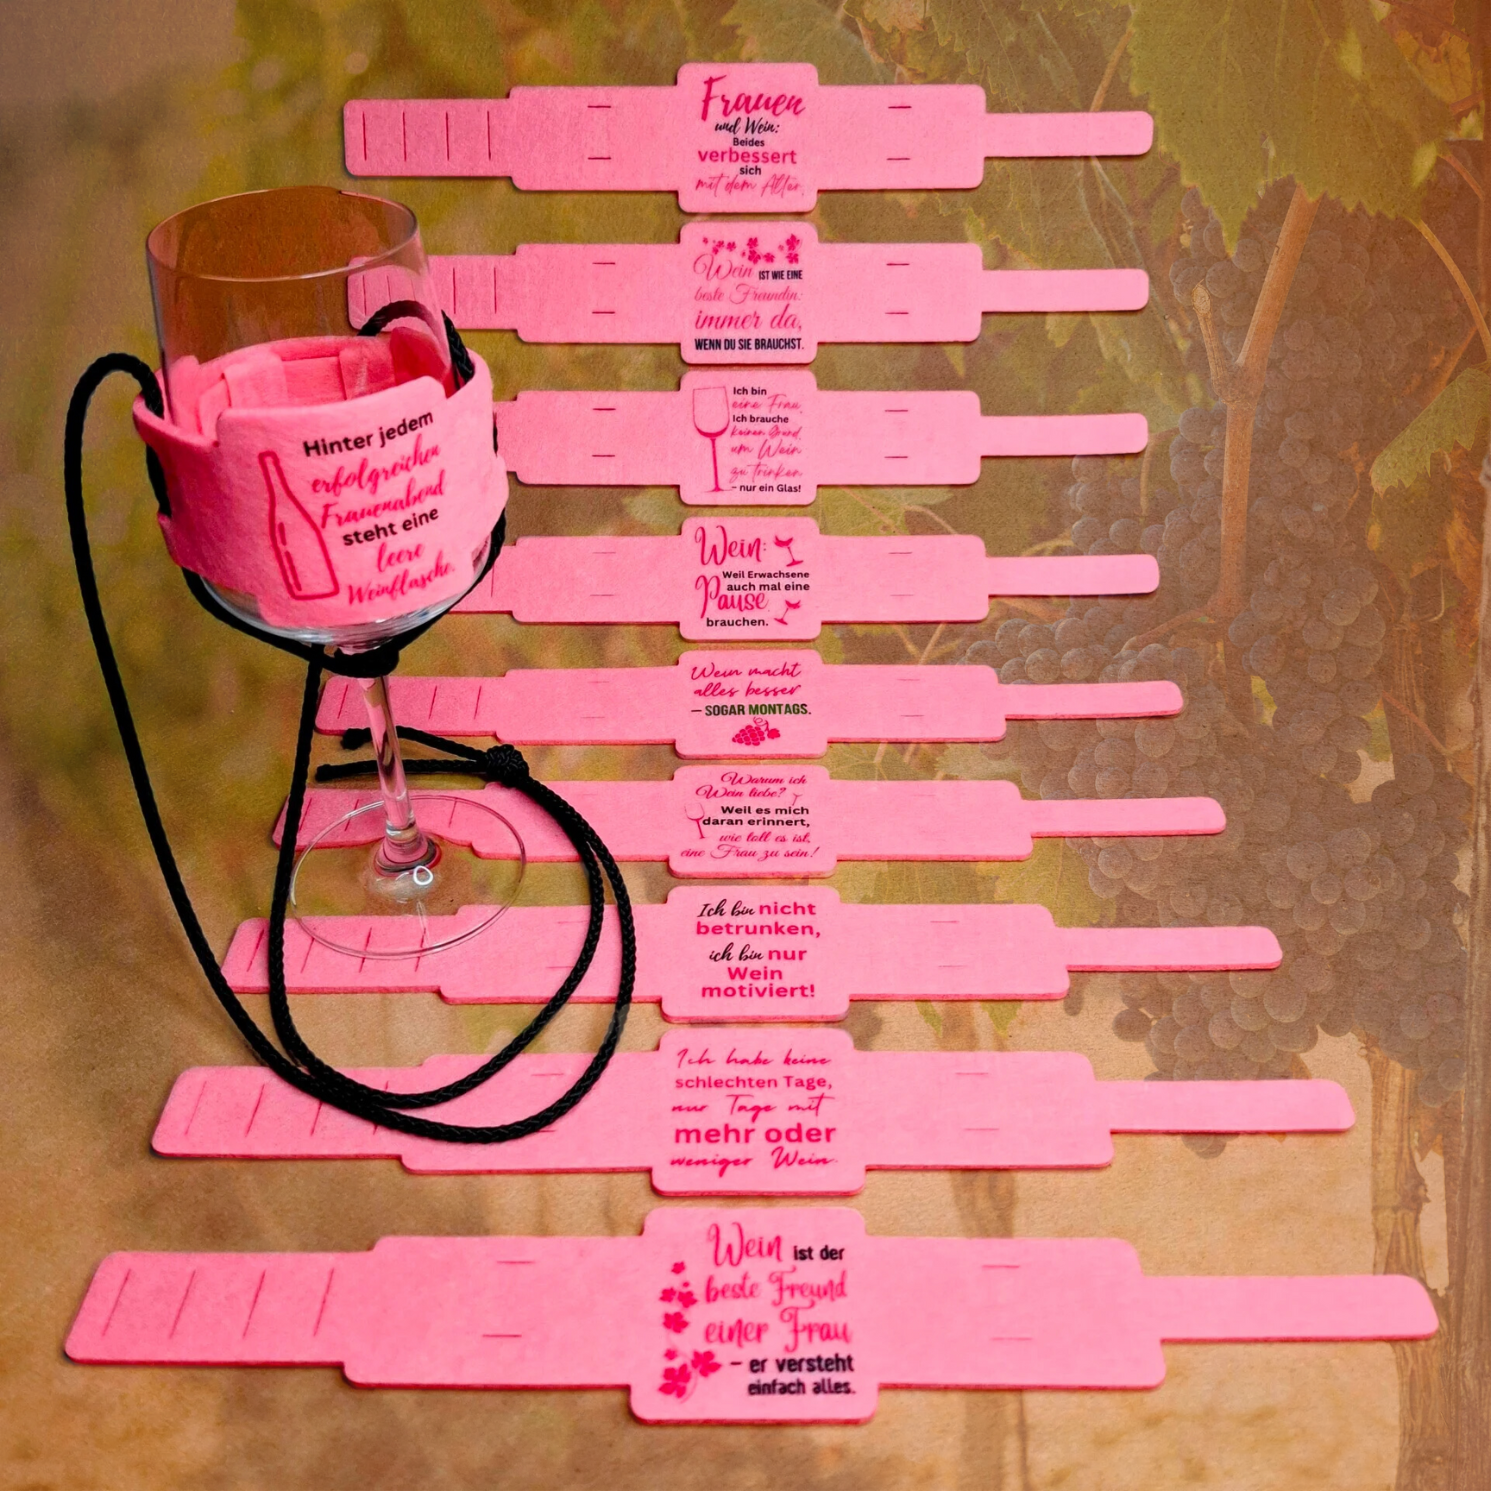 Frauen
und Wein:
Beides
verbessert
sich
mit dem Alter.
Wein IST WIE EINE
beste Freundin:
immer da,
WENN DU SIE BRAUCHST.
Ich bin
eine Frau,
Ich brauche
keinen Grund,
um Wein
zu trinken
– nur ein Glas!
Hinter jedem
erfolgreichen
Frauenabend
steht eine
leere
Weinflasche.
Wein:
Weil Erwachsene
auch mal eine
Pause
brauchen.
Wein macht
alles besser
– SOGAR MONTAGS.
Warum ich
Wein liebe?
Weil es mich
daran erinnert,
wie toll es ist,
eine Frau zu sein!
Ich bin nicht
betrunken,
ich bin nur
Wein
motiviert!
Ich habe keine
schlechten Tage,
nur Tage mit
mehr oder
weniger Wein.
Wein ist der
beste Freund
einer Frau
– er versteht
einfach alles.